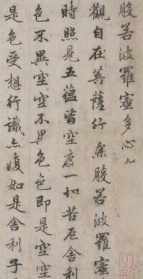 般若波羅蜜多心
觀自在菩薩行深般若波羅蜜
時照見五蘊皆空度一切苦厄舍
色不異空空不異色色即是空空
是色受想行識亦復如是舍利子